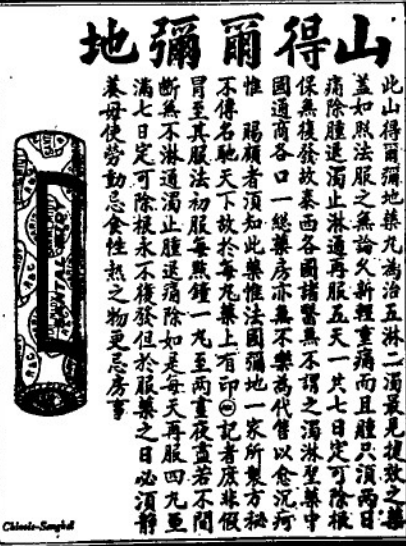 山得爾彌地
此山得爾彌地藥丸為治五淋二濁最見捷效之藥
蓋如照法服之無論久新輕重痛而且腫只須兩日
痛除腫退濁止淋通再服五天一共七日定可除根
保無復發故泰西各國諸醫無不謂之濁淋聖藥中
國通商各口一總藥房亦無不樂為代售以愈沉疴
惟 賜顧者須知此藥惟法國彌地一家所製方秘
不傳名馳天下故於每丸藥上有印記者庶非假
冒至其服法初服每點鐘一丸至兩晝夜盡若不間
斷無不淋通濁止腫退痛除如是每天再服四丸重
滿七日定可除根永不復發但於服藥之日必須靜
養毋使勞動忌食性熱之物更忌房事
SANTAL MIDY
Chinois-Senghel